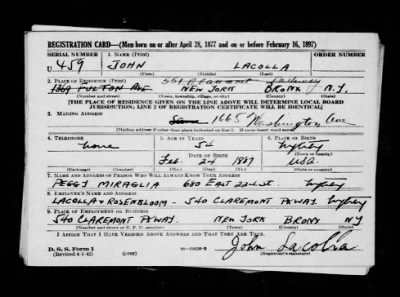 REGISTRATION CARD—(Men born on or after April 28, 1877 and on or before February 16, 1897)
SERIAL NUMBER 1. NAME (Print) ORDER NUMBER
U 459 JOHN LACOLLA
(First) (Middle) (Last)
2. PLACE OF RESIDENCE (Print)
1369 FULTON AVE NEW YORK BRONX N.Y.
(Number and street) (Town, township, village, or city) (County) (State)
[THE PLACE OF RESIDENCE GIVEN ON THE LINE ABOVE WILL DETERMINE LOCAL BOARD
JURISDICTION; LINE 2 OF REGISTRATION CERTIFICATE WILL BE IDENTICAL]
3. MAILING ADDRESS
Same 1665 Washington Ave
[Mailing address if other than place indicated on line 2. If same insert word same]
4. TELEPHONE 5. AGE IN YEARS 6. PLACE OF BIRTH
none 54
DATE OF BIRTH
Feb. 24 1887
(Mo.) (Day) (Yr.)
7. NAME AND ADDRESS OF PERSON WHO WILL ALWAYS KNOW YOUR ADDRESS
PEGGY MIRAGLIA 680 EAST 224 ST.
8. EMPLOYER'S NAME AND ADDRESS
LACOLLA & ROSENBLOOM - 540 CLAREMONT PKWAY.
9. PLACE OF EMPLOYMENT OR BUSINESS
540 CLAREMONT PKWAY. NEW YORK BRONX NY
(Number and street or R. F. D. number) (Town) (County) (State)
I AFFIRM THAT I HAVE VERIFIED ABOVE ANSWERS AND THAT THEY ARE TRUE.
D. S. S. Form 1
John Lacolla
(Registrant's signature)